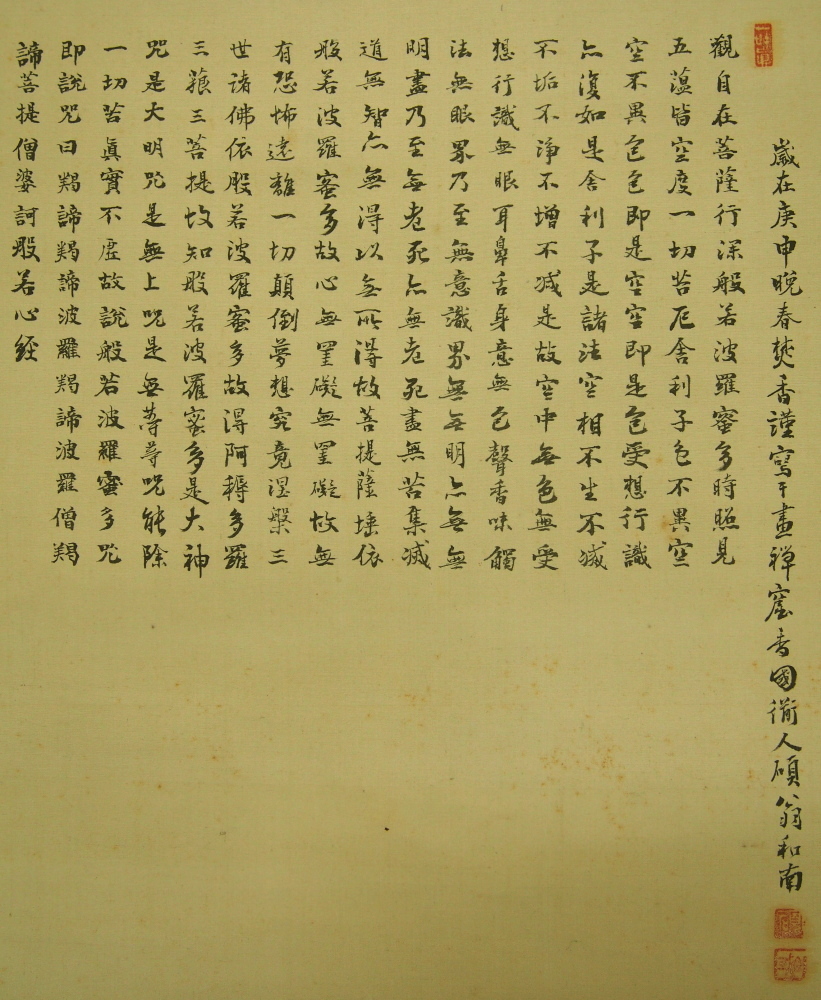 歲在庚申晚春焚香謹寫于畫禪窟香國衜人碩翁和南
觀自在菩薩行深般若波羅蜜多時照見
五蕰皆空度一切苦厄舍利子色不異空
空不異色色即是空空即是色受想行識
亦復如是舍利子是諸法空相不生不滅
不垢不淨不增不減是故空中無色無受
想行識無眼耳鼻舌身意無色聲香味觸
法無眼界乃至無意識界無無明亦無無
明盡乃至無老死亦無老死盡無苦集滅
道無智亦無得以無所得故菩提薩埵依
般若波羅蜜多故心無罣礙無罣礙故無
有恐怖遠離一切顛倒夢想究竟涅槃三
世諸佛依般若波羅蜜多故得阿耨多羅
三藐三菩提故知般若波羅蜜多是大神
咒是大明咒是無上咒是無等等咒能除
一切苦眞實不虛故說般若波羅蜜多咒
即說咒曰羯諦羯諦波羅羯諦波羅僧羯
諦菩提僧婆訶般若心經